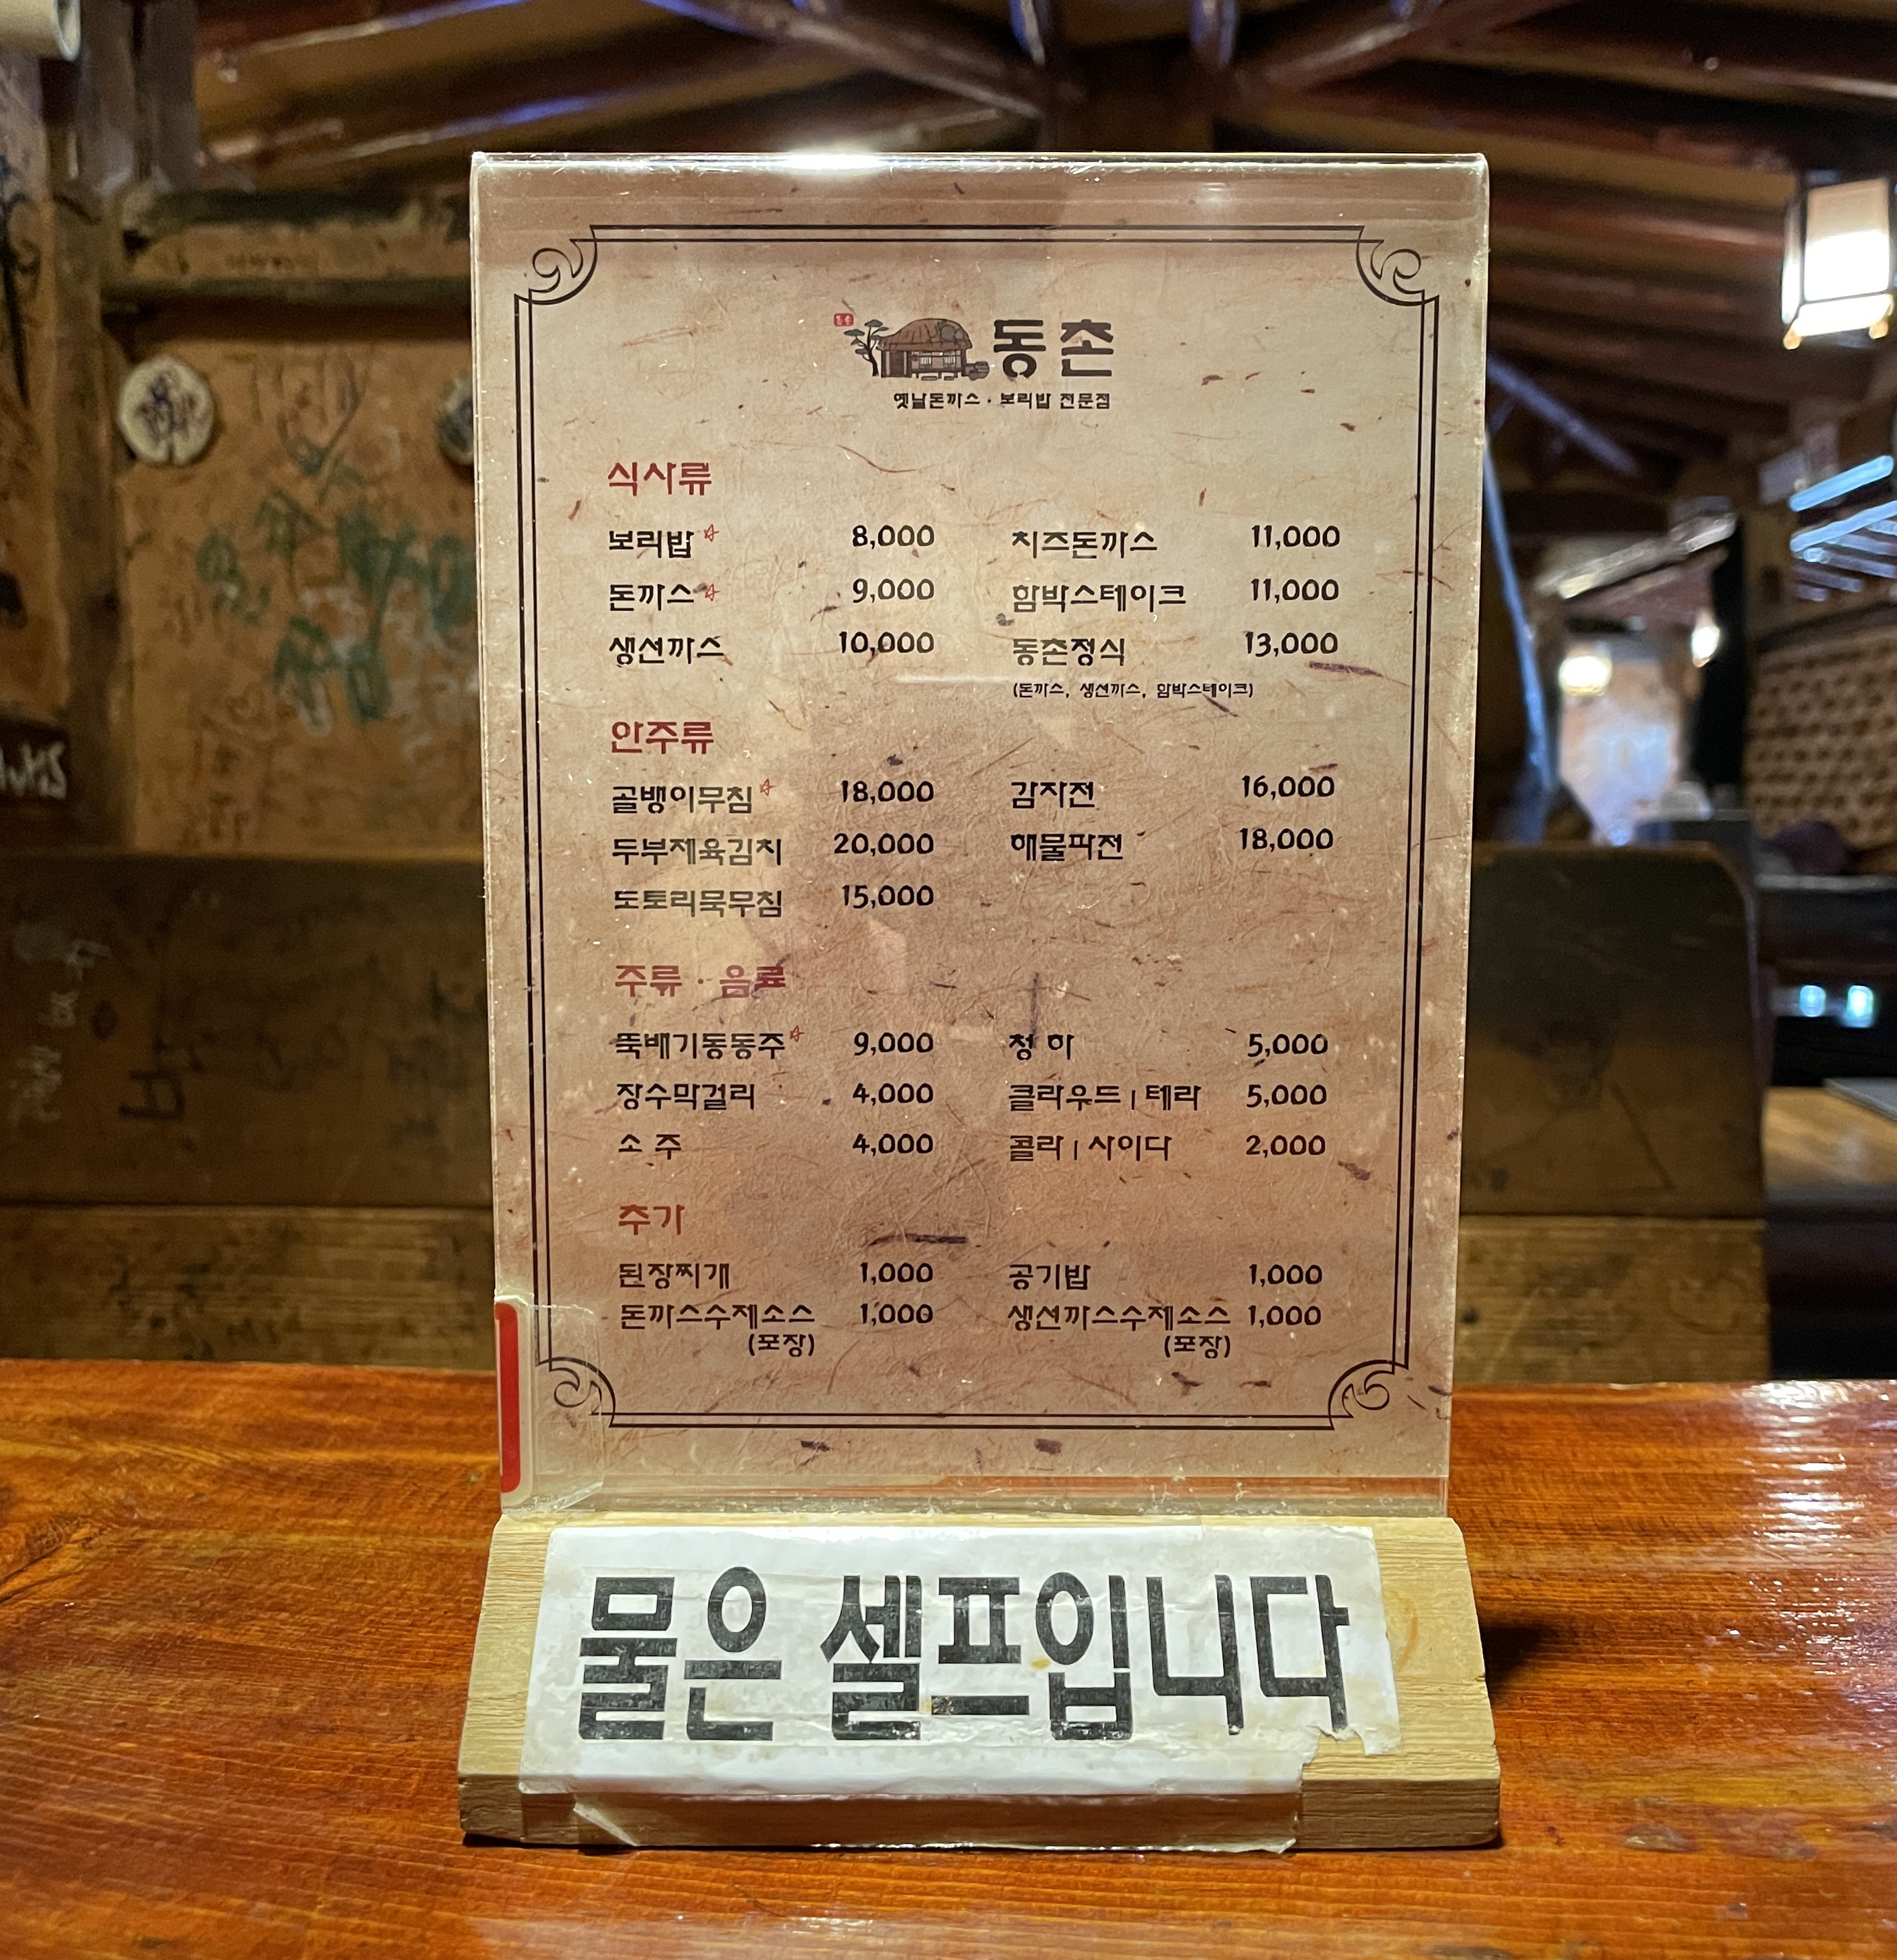 동촌
옛날돈까스 · 보리밥 전문점
식사류
보리밥 8,000 치즈돈까스 11,000
돈까스 9,000 함박스테이크 11,000
생선까스 10,000 동촌정식 13,000
(돈까스, 생선까스, 함박스테이크)
안주류
골뱅이무침 18,000 감자전 16,000
두부제육김치 20,000 해물파전 18,000
도토리묵무침 15,000
주류 · 음료
뚝배기동동주 9,000 청 하 5,000
장수막걸리 4,000 클라우드 | 테라 5,000
소 주 4,000 콜라 | 사이다 2,000
추가
된장찌개 1,000 공기밥 1,000
돈까스수제소스 1,000 생선까스수제소스 1,000
(포장) (포장)
물은 셀프입니다